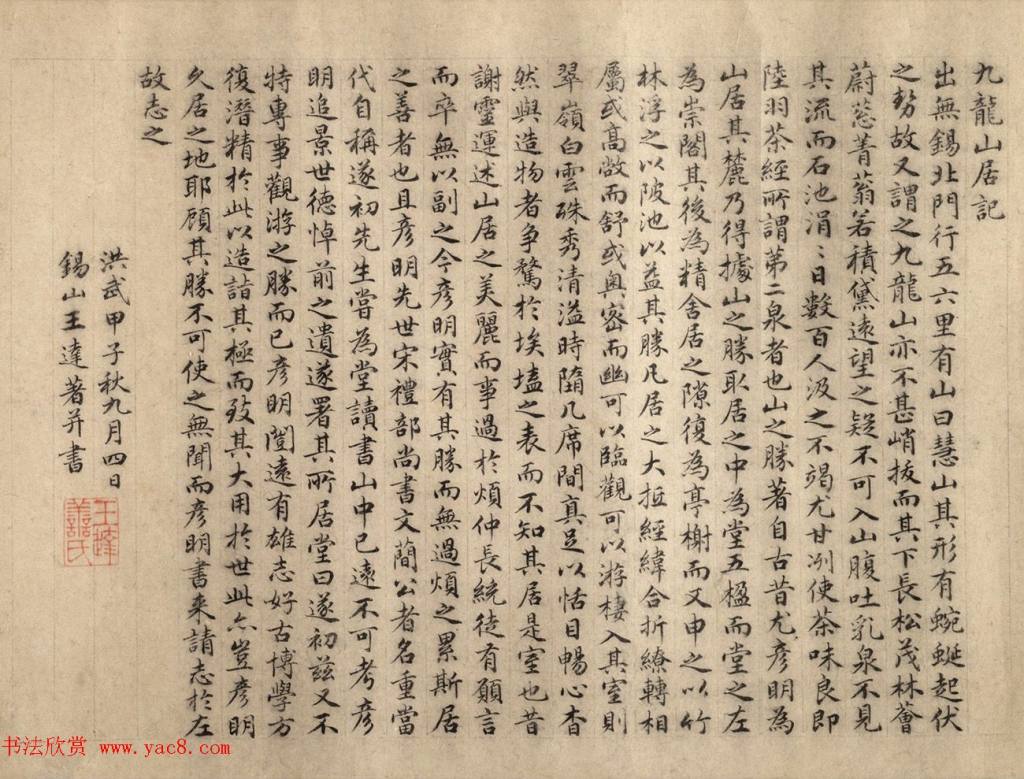 九龍山居記
出無錫北門行五六里有山曰慧山其形有蜿蜒起伏
之勢故又謂之九龍山亦不甚峭拔而其下長松茂林薈
蔚葱菁蓊若積黛遠望之疑不可入山腹吐乳泉不見
其流而石池涓〻日數百人汲之不竭尤甘冽使茶味良即
陸羽茶經所謂第二泉者也山之勝著自古昔尤彥明為
山居其麓乃得據山之勝取居之中為堂五楹而堂之左
為崇閣其後為精舍居之隙復為亭榭而又申之以竹
林浮之以陂池以益其勝凡居之大抵經緯合折繚轉相
屬或高敞而舒或奥密而幽可以臨觀可以游棲入其室則
翠嶺白雲殊秀清溢時隨几席間真足以恬目暢心杳
然與造物者争騖於埃壒之表而不知其居是室也昔
謝靈運述山居之美麗而事過於煩仲長統徒有願言
而卒無以副之今彥明實有其勝而無過煩之累斯居
之善者也且彥明先世宋禮部尚書文簡公者名重當
代自稱遂初先生嘗為堂讀書山中已遠不可考彥
明追景世德悼前之遺遂署其所居堂曰遂初兹又不
特專事觀游之勝而已彥明閎遠有雄志好古博學方
復潛精於此以造詣其極而致其大用於世此亦豈彥明
久居之地耶顧其勝不可使之無聞而彥明書来請志於左
故志之
洪武甲子秋九月四日
錫山王達著并書
王達
善氏
书法欣赏 www.yac8.com